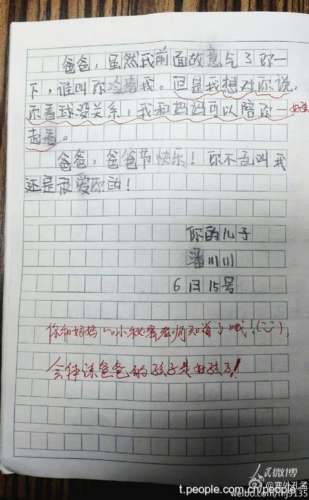 爸爸，虽然我前面故意气了你一
下，谁叫你冷落我。但是我想对你说，
你看球没关系，我和妈妈可以陪你一
起看。
爸爸，爸爸节快乐！你不在叫我
还是很爱你的！
你的儿子
潘川川
6月15号
你和妈妈的小秘密老师知道了哦！
会体谅爸爸的孩子是好孩子！
人民微博
t.people.com.cn/people
weibo.com/